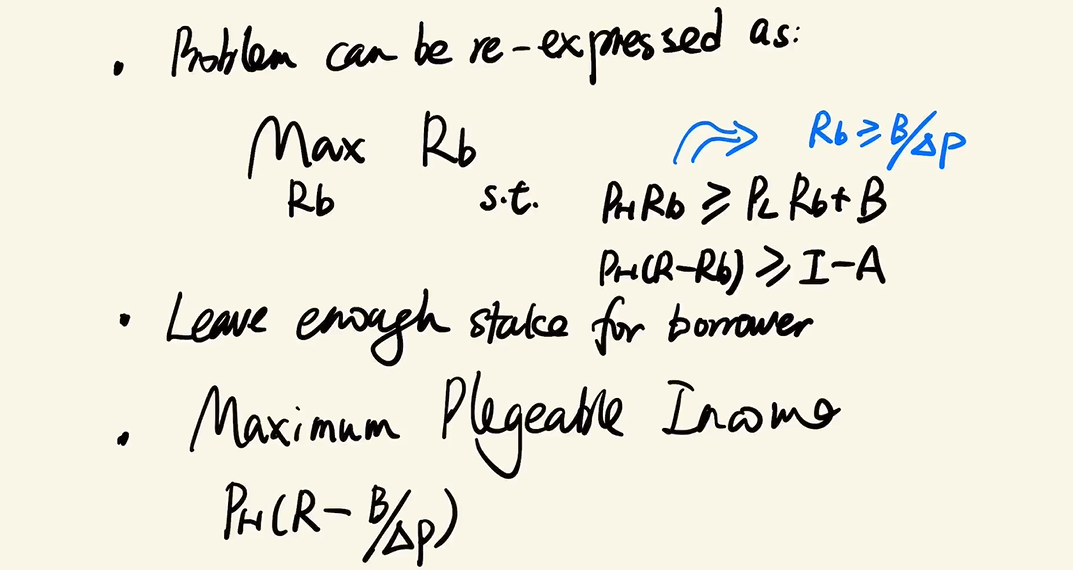 • Problem can be re-expressed as:
Max Rb
Rb ≥ B/Δp
Rb s.t. PH Rb ≥ PL Rb + B
PH(R-Rb) ≥ I-A
• Leave enough stake for borrower
• Maximum Plegeable Income
PH(R- B/Δp)